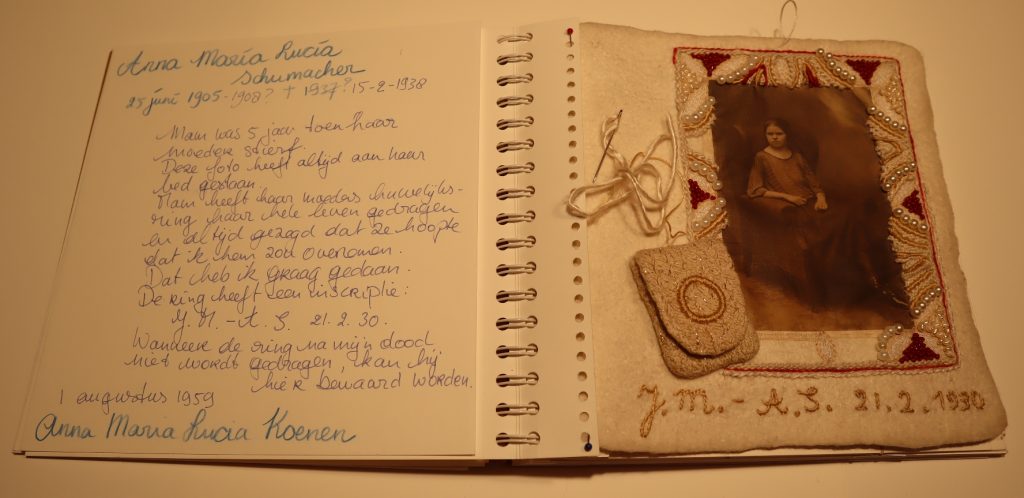 Anna Maria Lucia
Schumacher
25 juni 1905 - 1908? + 1937? 15-2-1938
Mam was 5 jaar toen haar
moeder stierf.
Deze foto heeft altijd aan haar
bed gestaan.
Mam heeft haar moeders huwelijks-
ring haar hele leven gedragen
en altijd gezegd dat ze hoopte
dat ik hem zou overnemen.
Dat heb ik graag gedaan.
De ring heeft een inscriptie:
J. M. - A. S. 21. 2. 30.
Wanneer de ring na mijn dood
niet wordt gedragen, kan hij
hier bewaard worden.
1 augustus 1959
Anna Maria Lucia Koenen
J. M. - A. S. 21. 2. 1930